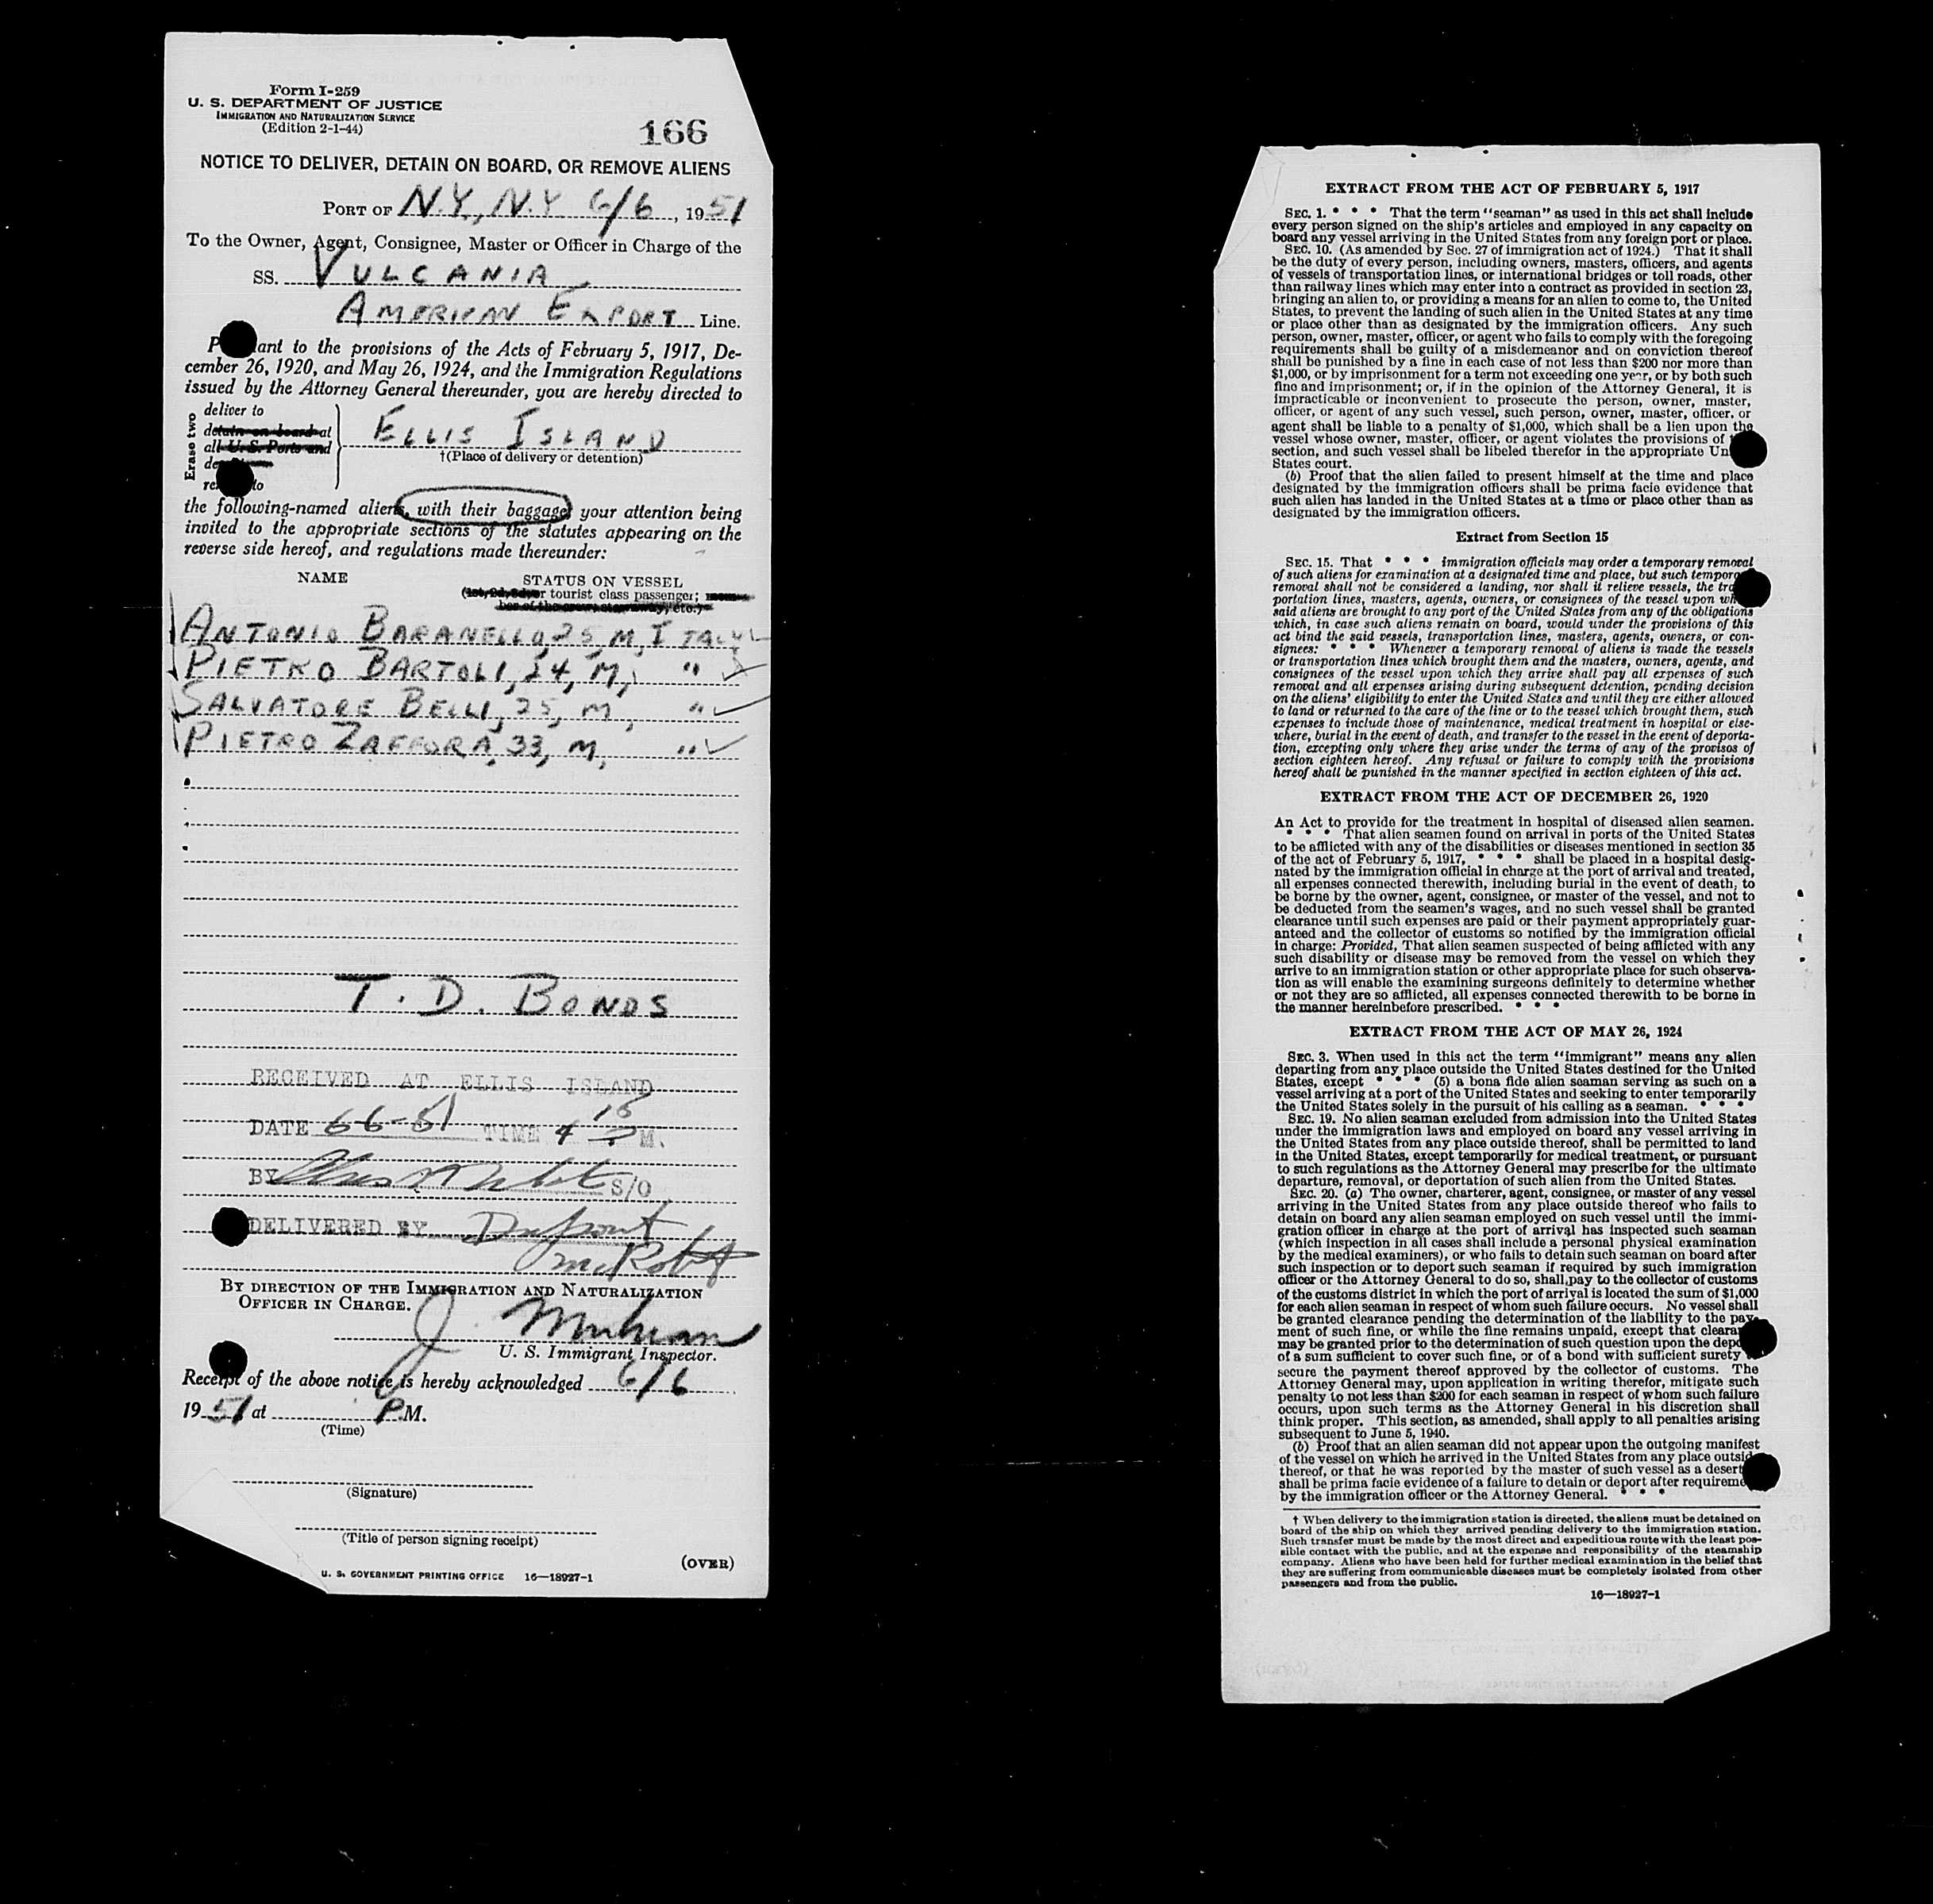 Form I-259
U. S. DEPARTMENT OF JUSTICE
IMMIGRATION AND NATURALIZATION SERVICE
(Edition 2-1-44)
166
NOTICE TO DELIVER, DETAIN ON BOARD, OR REMOVE ALIENS
PORT OF N.Y., N.Y 6/6, 1951
To the Owner, Agent, Consignee, Master or Officer in Charge of the
SS. VULCANIA
AMERICAN EXPORT Line.
to the provisions of the Acts of February 5, 1917, De-
cember 26, 1920, and May 26, 1924, and the Immigration Regulations
issued by the Attorney General thereunder, you are hereby directed to
Erase two
deliver to
detain on board at
all U. S. Ports and
to
ELLIS ISLAND
†(Place of delivery or detention)
the following-named aliens, with their baggage, your attention being
invited to the appropriate sections of the statutes appearing on the
reverse side hereof, and regulations made thereunder:
NAME STATUS ON VESSEL
(1st, 2d, 3d, or tourist class passenger; mem-
ber of the crew, stowaway, etc.)
ANTONIO BARANELLO, 25, M, ITALY
PIETRO BARTOLI, 24, M, "
SALVATORE BELLI, 25, M, "
PIETRO ZAFFORA, 33, M, "
T. D. BONDS
RECEIVED AT ELLIS ISLAND
DATE 6-6-51 TIME 4 M.
BY S/O
DELIVERED BY Dupont
BY DIRECTION OF THE IMMIGRATION AND NATURALIZATION
OFFICER IN CHARGE.
J.
U. S. Immigrant Inspector.
Receipt of the above notice is hereby acknowledged 6/6
1951 at P.M.
(Time)
(Signature)
(Title of person signing receipt)
(OVER)
U. S. GOVERNMENT PRINTING OFFICE 16—18927-1
EXTRACT FROM THE ACT OF FEBRUARY 5, 1917
SEC. 1. * * * That the term "seaman" as used in this act shall include
every person signed on the ship's articles and employed in any capacity on
board any vessel arriving in the United States from any foreign port or place.
SEC. 10. (As amended by Sec. 27 of immigration act of 1924.) That it shall
be the duty of every person, including owners, masters, officers, and agents
of vessels of transportation lines, or international bridges or toll roads, other
than railway lines which may enter into a contract as provided in section 23,
bringing an alien to, or providing a means for an alien to come to, the United
States, to prevent the landing of such alien in the United States at any time
or place other than as designated by the immigration officers. Any such
person, owner, master, officer, or agent who fails to comply with the foregoing
requirements shall be guilty of a misdemeanor and on conviction thereof
shall be punished by a fine in each case of not less than $200 nor more than
$1,000, or by imprisonment for a term not exceeding one year, or by both such
fine and imprisonment; or, if in the opinion of the Attorney General, it is
impracticable or inconvenient to prosecute the person, owner, master,
officer, or agent of any such vessel, such person, owner, master, officer, or
agent shall be liable to a penalty of $1,000, which shall be a lien upon the
vessel whose owner, master, officer, or agent violates the provisions of
section, and such vessel shall be libeled therefor in the appropriate
States court.
(b) Proof that the alien failed to present himself at the time and place
designated by the immigration officers shall be prima facie evidence that
such alien has landed in the United States at a time or place other than as
designated by the immigration officers.
Extract from Section 15
SEC. 15. That * * * immigration officials may order a temporary removal
of such aliens for examination at a designated time and place, but such temporary
removal shall not be considered a landing, nor shall it relieve vessels, the
portation lines, masters, agents, owners, or consignees of the vessel upon
said aliens are brought to any port of the United States from any of the obligations
which, in case such aliens remain on board, would under the provisions of this
act bind the said vessels, transportation lines, masters, agents, owners, or con-
signees: * * * Whenever a temporary removal of aliens is made the vessels
or transportation lines which brought them and the masters, owners, agents, and
consignees of the vessel upon which they arrive shall pay all expenses of such
removal and all expenses arising during subsequent detention, pending decision
on the aliens' eligibility to enter the United States and until they are either allowed
to land or returned to the care of the line or to the vessel which brought them, such
expenses to include those of maintenance, medical treatment in hospital or else-
where, burial in the event of death, and transfer to the vessel in the event of deporta-
tion, excepting only where they arise under the terms of any of the provisos of
section eighteen hereof. Any refusal or failure to comply with the provisions
hereof shall be punished in the manner specified in section eighteen of this act.
EXTRACT FROM THE ACT OF DECEMBER 26, 1920
An Act to provide for the treatment in hospital of diseased alien seamen.
* * * That alien seamen found on arrival in ports of the United States
to be afflicted with any of the disabilities or diseases mentioned in section 35
of the act of February 5, 1917, * * * shall be placed in a hospital desig-
nated by the immigration official in charge at the port of arrival and treated,
all expenses connected therewith, including burial in the event of death, to
be borne by the owner, agent, consignee, or master of the vessel, and not to
be deducted from the seamen's wages, and no such vessel shall be granted
clearance until such expenses are paid or their payment appropriately guar-
anteed and the collector of customs so notified by the immigration official
in charge: Provided, That alien seamen suspected of being afflicted with any
such disability or disease may be removed from the vessel on which they
arrive to an immigration station or other appropriate place for such observa-
tion as will enable the examining surgeons definitely to determine whether
or not they are so afflicted, all expenses connected therewith to be borne in
the manner hereinbefore prescribed. * * *
EXTRACT FROM THE ACT OF MAY 26, 1924
SEC. 3. When used in this act the term "immigrant" means any alien
departing from any place outside the United States destined for the United
States, except * * * (5) a bona fide alien seaman serving as such on a
vessel arriving at a port of the United States and seeking to enter temporarily
the United States solely in the pursuit of his calling as a seaman. * * *
SEC. 19. No alien seaman excluded from admission into the United States
under the immigration laws and employed on board any vessel arriving in
the United States from any place outside thereof, shall be permitted to land
in the United States, except temporarily for medical treatment, or pursuant
to such regulations as the Attorney General may prescribe for the ultimate
departure, removal, or deportation of such alien from the United States.
SEC. 20. (a) The owner, charterer, agent, consignee, or master of any vessel
arriving in the United States from any place outside thereof who fails to
detain on board any alien seaman employed on such vessel until the immi-
gration officer in charge at the port of arrival has inspected such seaman
(which inspection in all cases shall include a personal physical examination
by the medical examiners), or who fails to detain such seaman on board after
such inspection or to deport such seaman if required by such immigration
officer or the Attorney General to do so, shall pay to the collector of customs
of the customs district in which the port of arrival is located the sum of $1,000
for each alien seaman in respect of whom such failure occurs. No vessel shall
be granted clearance pending the determination of the liability to the pay-
ment of such fine, or while the fine remains unpaid, except that clearance
may be granted prior to the determination of such question upon the
of a sum sufficient to cover such fine, or of a bond with sufficient surety
secure the payment thereof approved by the collector of customs. The
Attorney General may, upon application in writing therefor, mitigate such
penalty to not less than $200 for each seaman in respect of whom such failure
occurs, upon such terms as the Attorney General in his discretion shall
think proper. This section, as amended, shall apply to all penalties arising
subsequent to June 5, 1940.
(b) Proof that an alien seaman did not appear upon the outgoing manifest
of the vessel on which he arrived in the United States from any place outside
thereof, or that he was reported by the master of such vessel as a deserter
shall be prima facie evidence of a failure to detain or deport after requirement
by the immigration officer or the Attorney General. * * *
† When delivery to the immigration station is directed, the aliens must be detained on
board of the ship on which they arrived pending delivery to the immigration station.
Such transfer must be made by the most direct and expeditious route with the least pos-
sible contact with the public, and at the expense and responsibility of the steamship
company. Aliens who have been held for further medical examination in the belief that
they are suffering from communicable diseases must be completely isolated from other
passengers and from the public.
16—18927-1